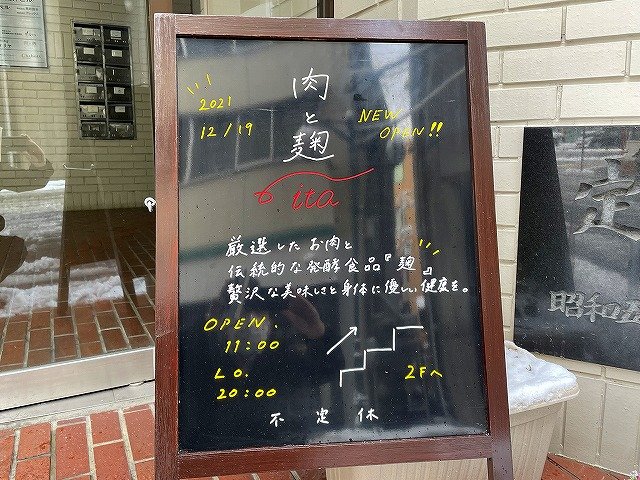 2021
12/19
肉と麹
NEW
OPEN!!
ita
厳選したお肉と
伝統的な発酵食品『麹』
贅沢な美味しさと身体に優しい健康を。
OPEN.
11:00
L o.
20:00
2Fへ
不定休
定
昭和五